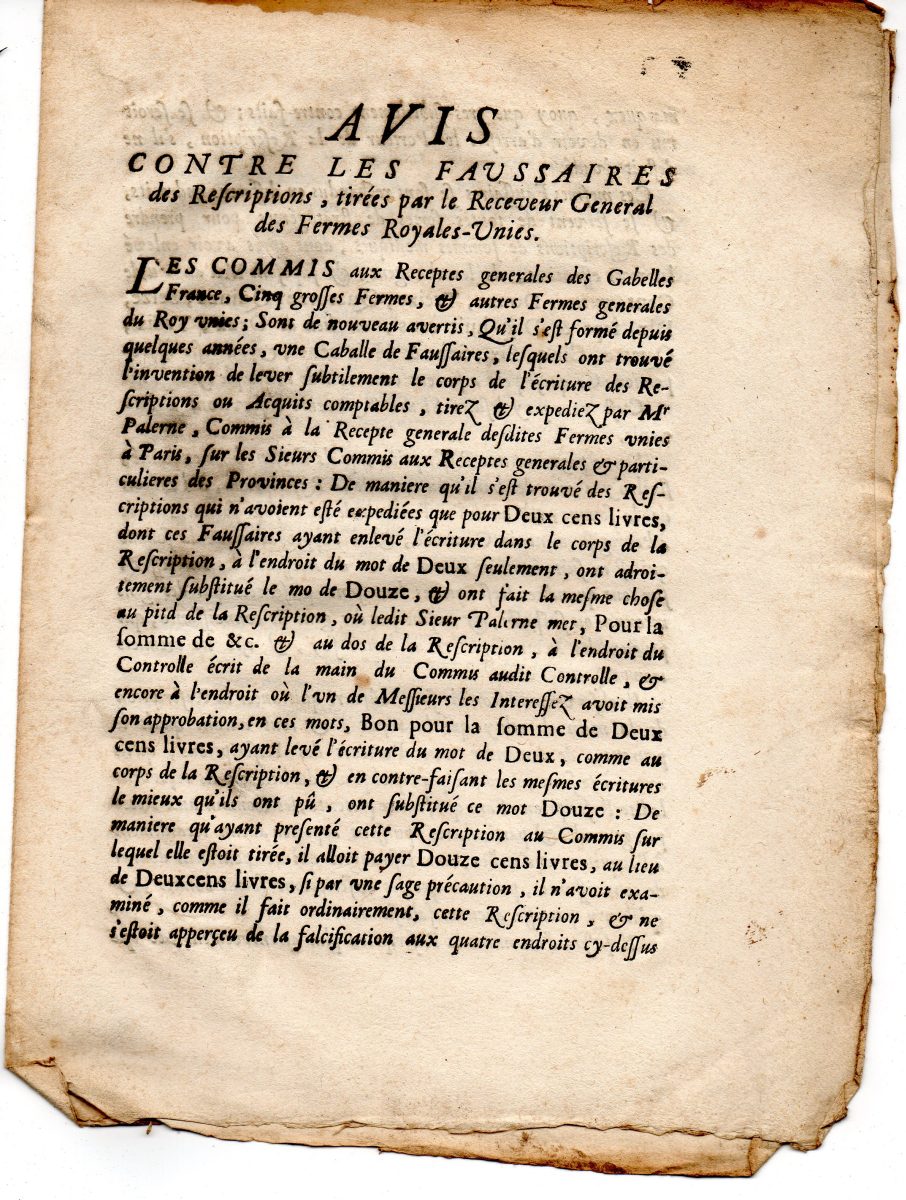 AVIS
CONTRE LES FAUSSAIRES
des Reſcriptions, tirées par le Receveur General
des Fermes Royales-Vnies.
LES COMMIS aux Receptes generales des Gabelles
France, Cinq groſſes Fermes, & autres Fermes generales
du Roy vnies; Sont de nouveau avertis, Qu'il s'eſt formé depuis
quelques années, vne Caballe de Fauſſaires, leſquels ont trouvé
l'invention de lever ſubtilement le corps de l'écriture des Re-
ſcriptions ou Acquits comptables, tirez & expediez par Mr
Palerne, Commis à la Recepte generale deſdites Fermes vnies
à Paris, ſur les Sieurs Commis aux Receptes generales & parti-
culieres des Provinces : De maniere qu'il s'eſt trouvé des Reſ-
criptions qui n'avoient eſté expediées que pour Deux cens livres,
dont ces Fauſſaires ayant enlevé l'écriture dans le corps de la
Reſcription, à l'endroit du mot de Deux ſeulement, ont adroi-
tement ſubſtitué le mo de Douze, & ont fait la meſme choſe
au pitd de la Reſcription, où ledit Sieur Palerne met, Pour la
ſomme de &c. & au dos de la Reſcription, à l'endroit du
Controlle écrit de la main du Commis audit Controlle, &
encore à l'endroit où l'vn de Meſſieurs les Intereſſez avoit mis
ſon approbation, en ces mots, Bon pour la ſomme de Deux
cens livres, ayant levé l'écriture du mot de Deux, comme au
corps de la Reſcription, & en contre-faiſant les meſmes écritures
le mieux qu'ils ont pû, ont ſubſtitué ce mot Douze : De
maniere qu'ayant preſenté cette Reſcription au Commis ſur
lequel elle eſtoit tirée, il alloit payer Douze cens livres, au lieu
de Deux cens livres, ſi par vne ſage précaution, il n'avoit exa-
miné, comme il fait ordinairement, cette Reſcription, & ne
s'eſtoit apperçeu de la falcification aux quatre endroits cy-deſſus